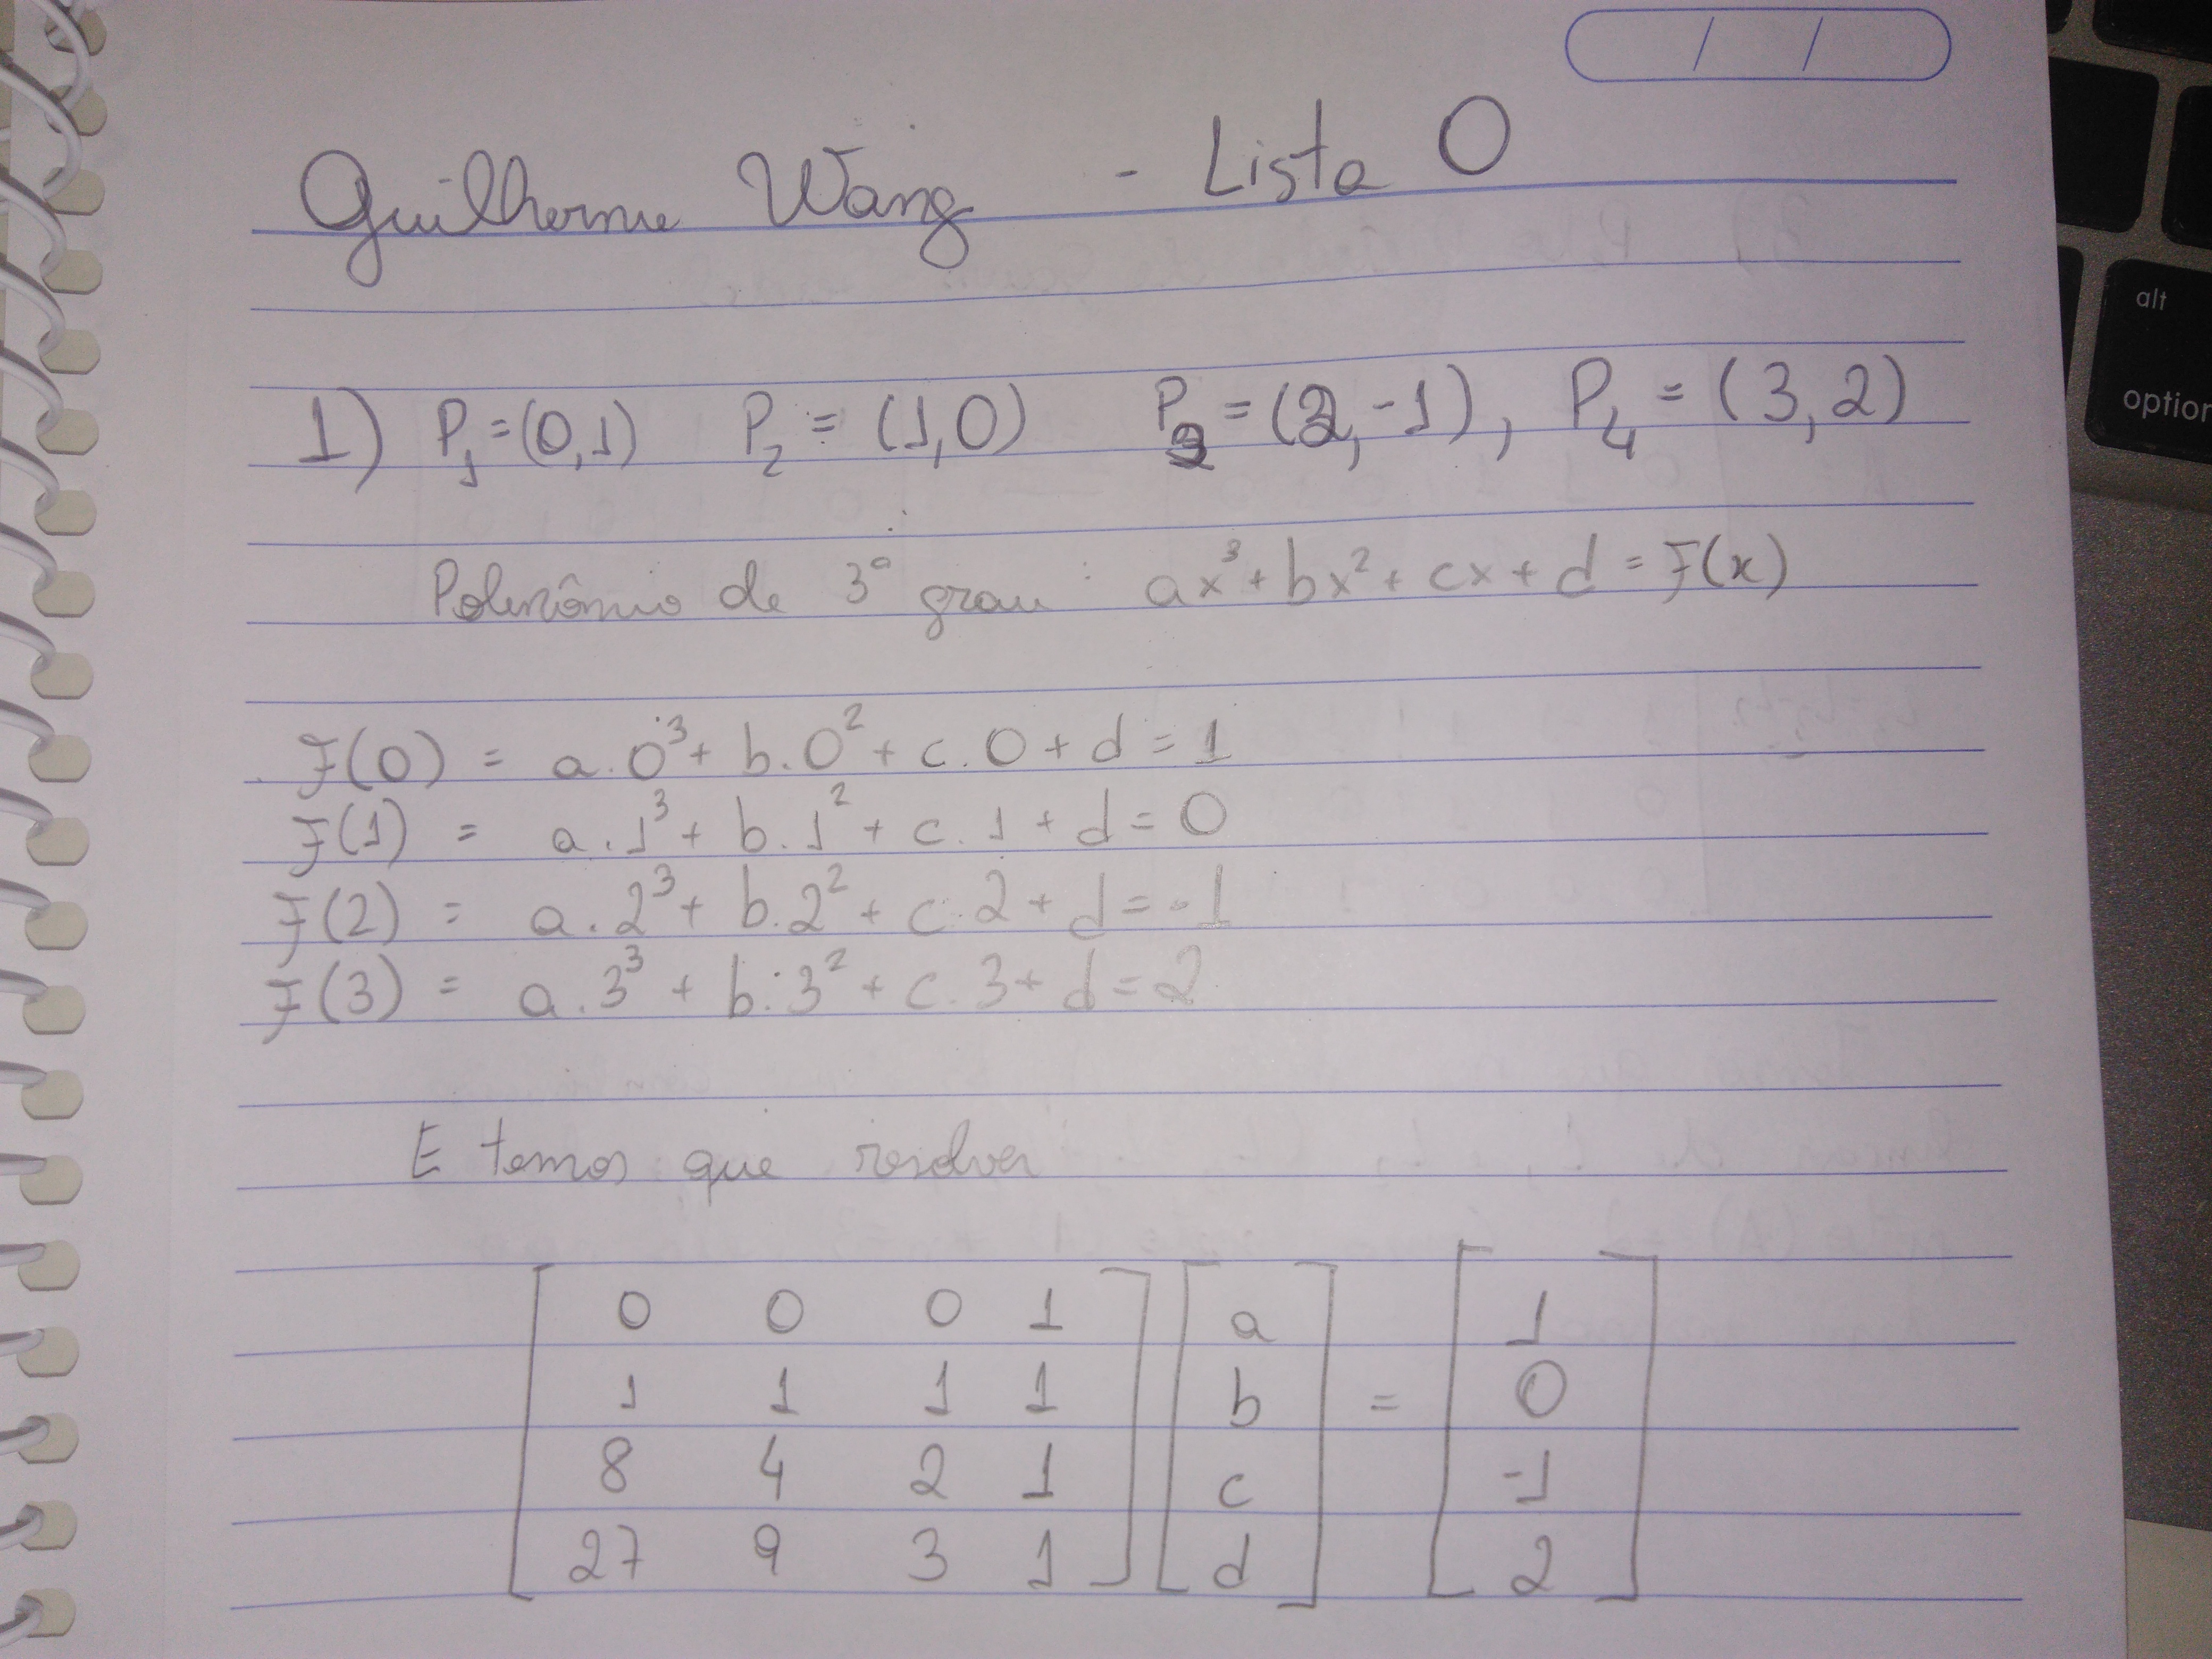 / /
Guilherme Wang - Lista 0
1) P₁ = (0,1) P₂ = (1,0) P₃ = (2,-1), P₄ = (3,2)
Polinômio de 3º grau: ax³ + bx² + cx + d = F(x)
F(0) = a.0³ + b.0² + c.0 + d = 1
F(1) = a.1³ + b.1² + c.1 + d = 0
F(2) = a.2³ + b.2² + c.2 + d = -1
F(3) = a.3³ + b.3² + c.3 + d = 2
E temos que resolver
0 0 0 1 a 1
1 1 1 1 b = 0
8 4 2 1 c -1
27 9 3 1 d 2
alt
option